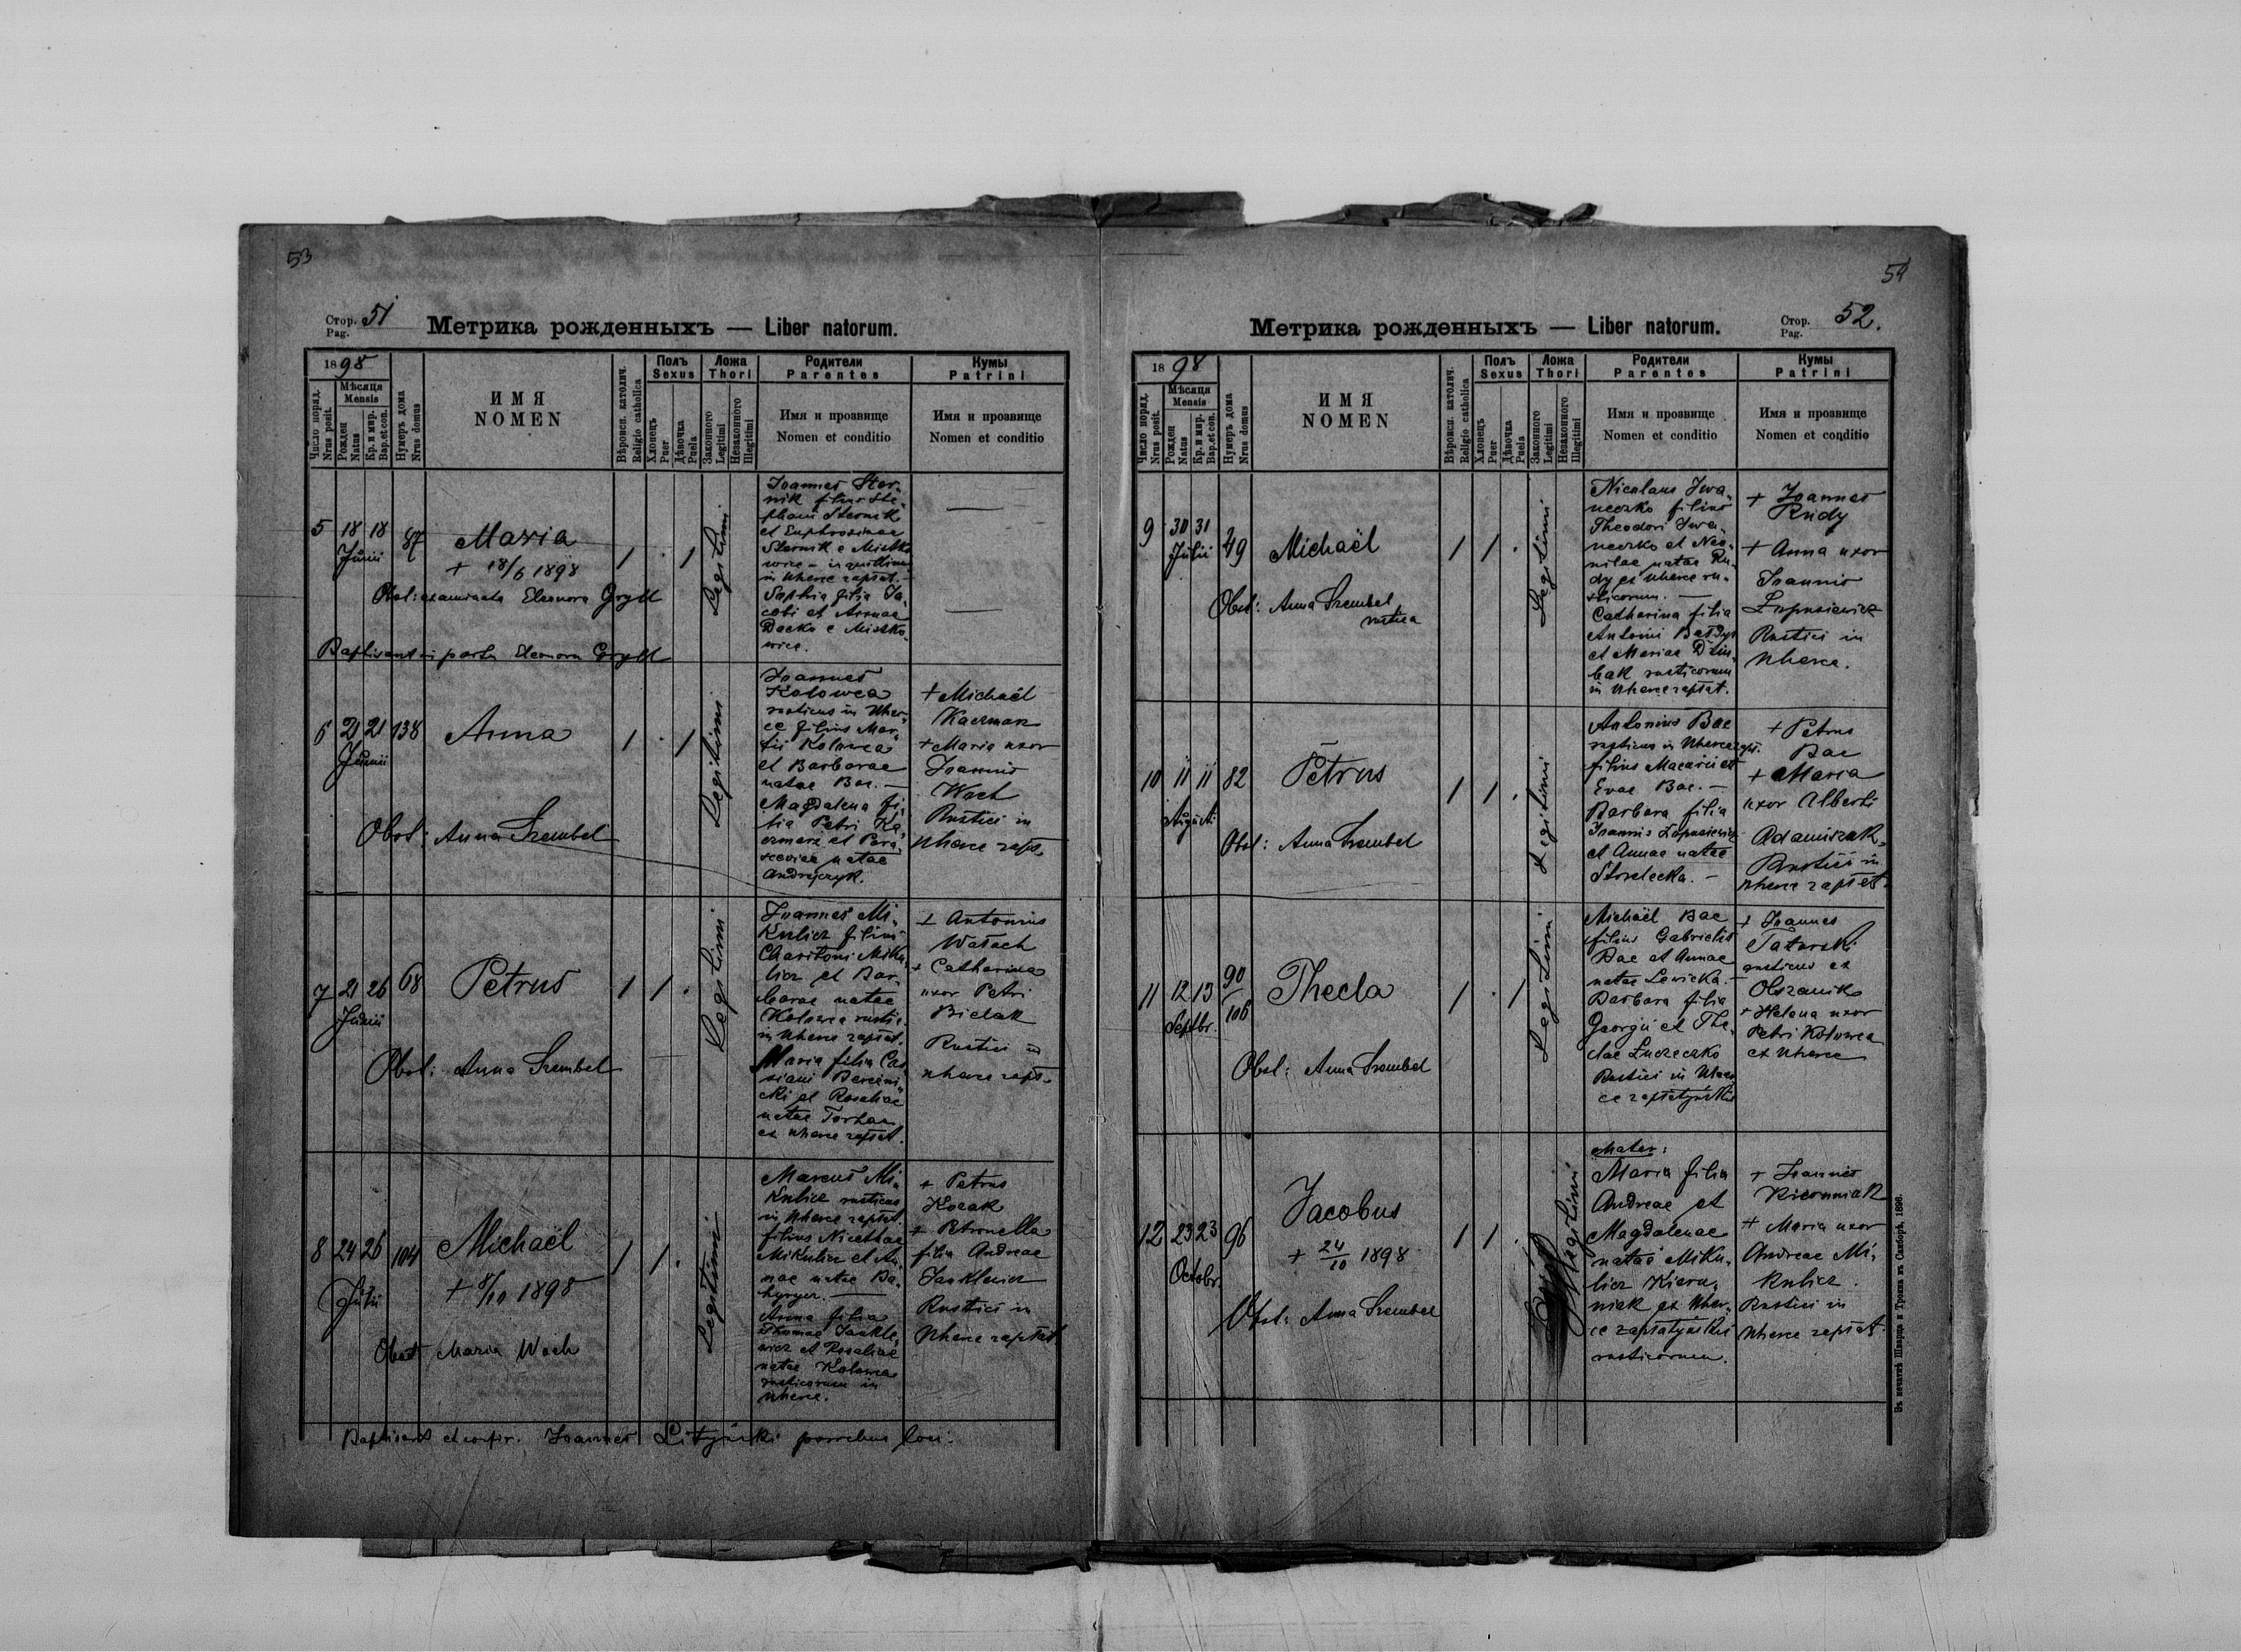 53
Стор. 51
Pag.
Метрика рожденныхъ — Liber natorum.
1898
Число поряд.
Nrus posit.
Мѣсяца
Mensis
Рожден
Natus
Кр. и мир.
Bap. et con.
Нумеръ дома
Nrus domus
ИМЯ
NOMEN
Вѣроисп. католич.
Religio catholica
Полъ
Sexus
Хлопецъ
Puer
Дѣвочка
Puela
Ложа
Thori
Законного
Legitimi
Незаконного
Illegitimi
Родители
Parentes
Имя и прозвище
Nomen et conditio
Кумы
Patrini
Имя и прозвище
Nomen et conditio
5 18 18 87
Junii
Maria
+ 18/6 1898
1 . 1
Legitimi
Obst: examinata Eleonora Gryll
Baptisavit in partu Eleonora Gryll
Joannes Ster-
nik filius Ste-
phani Sternik
et Euphrosinae
Sternik e Mistko-
wice – inquilinus
in Uherce zapłat. –
Sophia filia Ja-
cobi et Annae
Dacko e Mistko-
wice.
6 21 21 138
Junii
Anna
1 . 1
Legitimi
Obst: Anna Szembel
Joannes
Kołowca
rusticus in Uher-
ce filius Mar-
tii Kołowca
et Barbarae
natae Bac. —
Magdalena fi-
lia Petri Ka-
czmarz et Para-
sceviae natae
Andrejczyk.
+ Michaël
Kaczmarz
+ Maria uxor
Joannis
Wach
Rustici in
Uherce zapł.
7 21 26 68
Junii
Petrus
1 1 .
Legitimi
Obst: Anna Szembel
Joannes Mi-
kulicz filius
Charitoni Miku-
licz et Bar-
barae natae
Kołowca rustic.
in Uherce zapłat.
Maria filia Cas-
siani
cki et Rosaliae
natae
ex Uherce zapłat.
+ Antonius
Wałach
+ Catharina
uxor Petri
Bielak
Rustici in
Uherce zapł.
8 24 26 104
Julii
Michaël
+ 8/10 1898
1 1 .
Legitimi
Obst Maria Wach
Marcus Mi-
kulicz rusticus
in Uherce zapłat.
filius Nicethae
Mikulicz et An-
nae natae Ba-
—
Anna filia
Thomae Jankle-
wicz et Rosaliae
natae Kołowca
rusticorum in
Uherce.
+ Petrus
Kozak
+ Petronella
filia Andreae
Janklewicz
Rustici in
Uherce zapłat.
Baptisavit et confir. Joannes Lityński parochus loci.
54
Стор. 52.
Pag.
Метрика рожденныхъ — Liber natorum.
1898
Число поряд.
Nrus posit.
Мѣсяца
Mensis
Рожден
Natus
Кр. и мир.
Bap. et con.
Нумеръ дома
Nrus domus
ИМЯ
NOMEN
Вѣроисп. католич.
Religio catholica
Полъ
Sexus
Хлопецъ
Puer
Дѣвочка
Puela
Ложа
Thori
Законного
Legitimi
Незаконного
Illegitimi
Родители
Parentes
Имя и прозвище
Nomen et conditio
Кумы
Patrini
Имя и прозвище
Nomen et conditio
9 30 31 49
Julii
Michaël
1 1 .
Legitimi
Obst: Anna Szembel
rustica
Nicolaus Iwa-
neczko filius
Theodori Iwa-
neczko et Neo-
nilae natae Ru-
dy ex Uherce ru-
sticorum. —
Catharina filia
Antonii
et Mariae
bak rusticorum
in Uherce zapłat.
+ Joannes
Rudy
+ Anna uxor
Joannis
Łupusiewicz
Rustici in
Uherce.
10 11 11 82
Augusti
Petrus
1 1 .
Legitimi
Obst: Anna Szembel
Antonius Bac
rusticus in Uherce zapł.
filius Macarii et
Evae Bac. —
Barbara filia
Joannis Łupusiewicz
et Annae natae
Strzelecka. —
+ Petrus
Bac
+ Maria
uxor Alberti
Adamiszak,
Rustici in
Uherce zapłat.
11 12 13 90/106
Septbr.
Thecla
1 . 1
Legitimi
Obst: Anna Szembel
Michaël Bac
filius Gabrielis
Bac et Annae
natae Lewicka. –
Barbara filia
Georgii et The-
clae Łuczeczko
Rustici in Uher-
ce zapłatyńskie
+ Joannes
Tatarski
rusticus ex
Olszanik
+ Helena uxor
Petri Kołowca
ex Uherce
12 23 23 96
Octobr.
Jacobus
+ 24/10 1898
1 1 .
Illegitimi
Obst: Anna Szembel
Mater:
Maria filia
Andreae et
Magdalenae
natae Miku-
licz Kieru-
niak ex Uher-
ce zapłatyńskie
rusticorum.
+ Joannes
Kieruniak
+ Maria uxor
Andreae Mi-
kulicz.
Rustici in
Uherce zapłat.
Въ печатнѣ Шварца и Трояна въ Самборѣ, 1896.